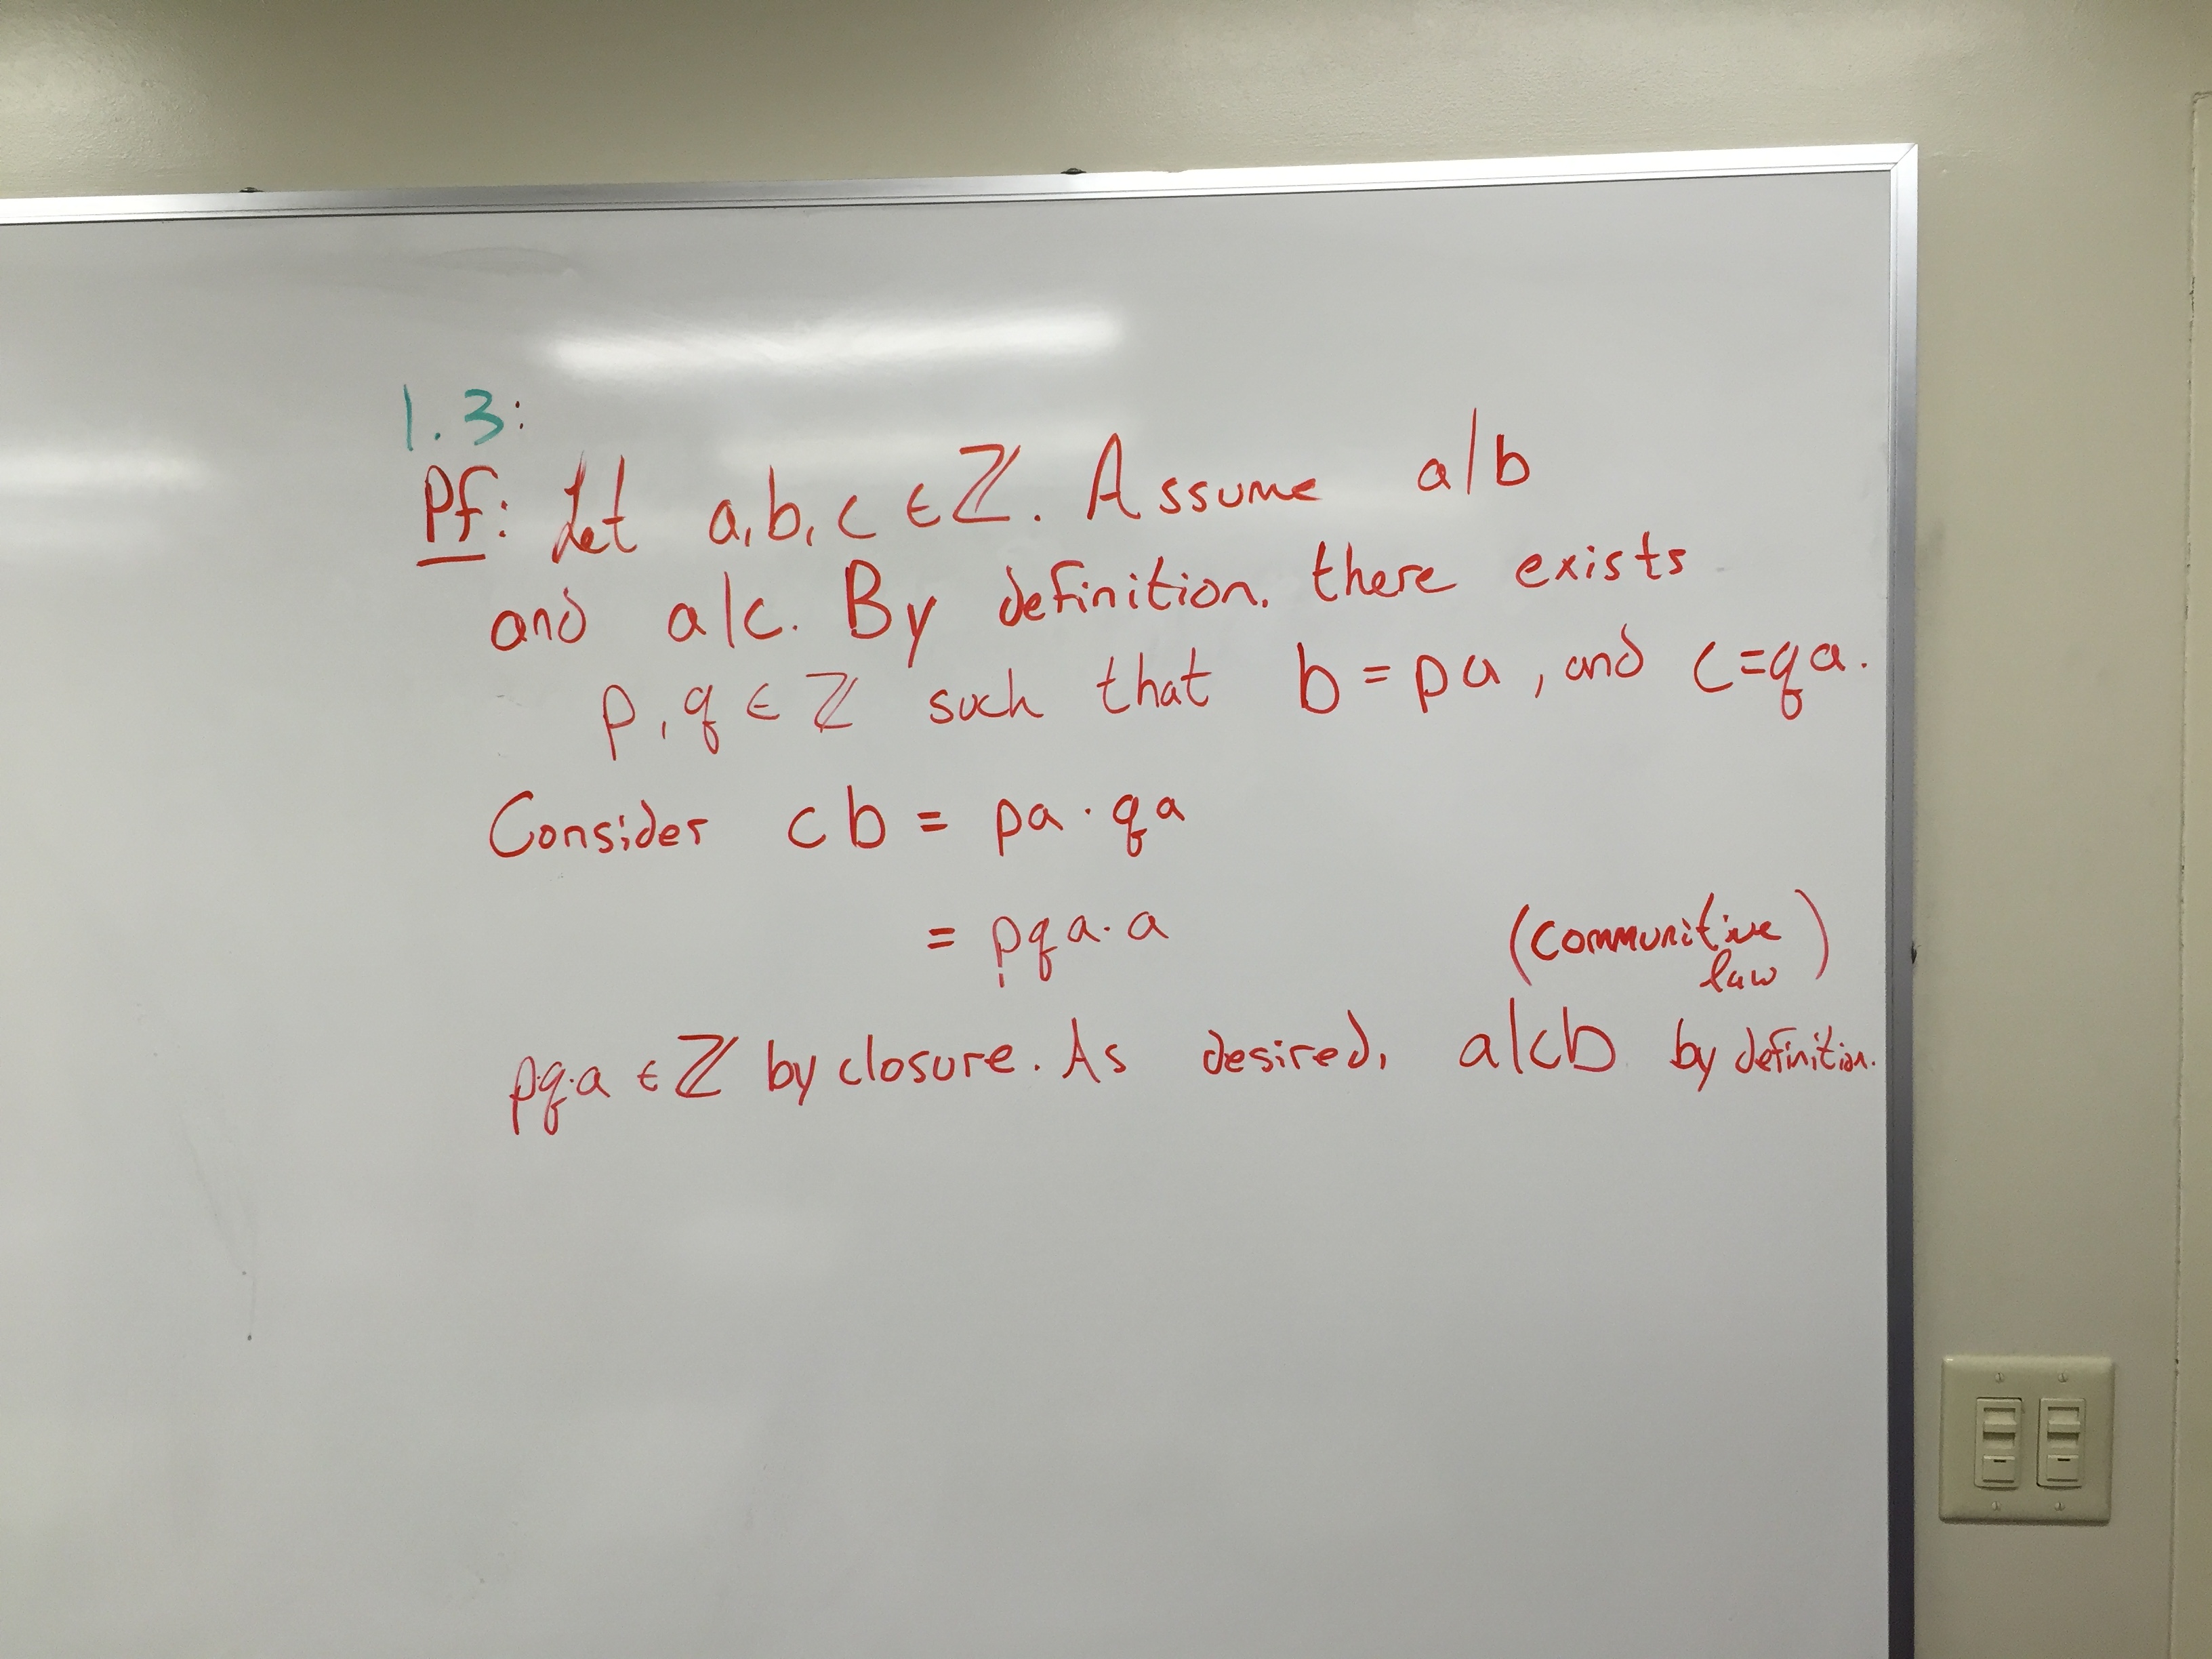 1.3:
Pf: Let a, b, c ∈ ℤ. Assume a|b
and a|c. By definition, there exists
p, q ∈ ℤ such that b = pa, and c=qa.
Consider cb = pa · qa
= pqa · a (communitive
law)
p·q·a ∈ ℤ by closure. As desired, a|cb by definition.